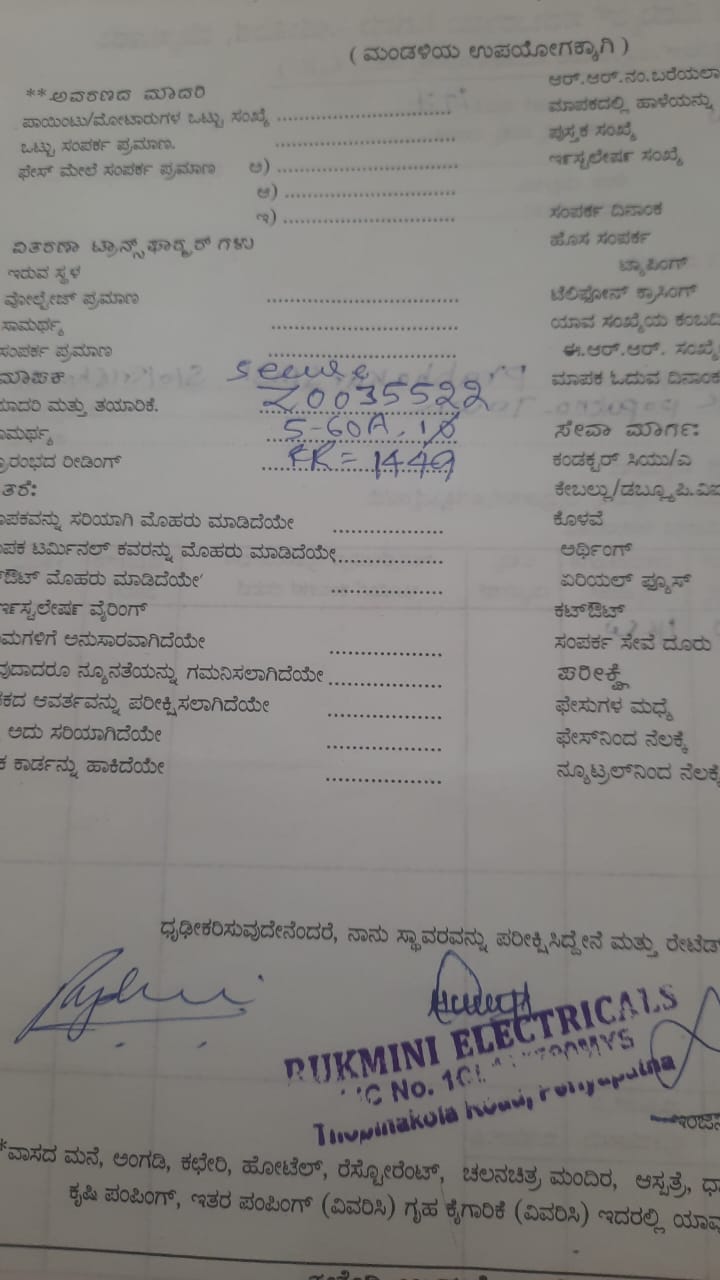 ( ಮಂಡಳಿಯ ಉಪಯೋಗಕ್ಕಾಗಿ )
**ಅವಕಣದ ಮಾದರಿ
ಪಾಯಿಂಟು/ಮೋಟಾರುಗಳ ಒಟ್ಟು ಸಂಖ್ಯೆ ........................
ಒಟ್ಟು ಸಂಪರ್ಕ ಪ್ರಮಾಣ. ........................
ಫೇಸ್ ಮೇಲೆ ಸಂಪರ್ಕ ಪ್ರಮಾಣ ಅ) ........................
ಆ) ........................
ಇ) ........................
ವಿತರಣಾ ಟ್ರಾನ್ಸ್‌ಫಾರ್‍ಮರ್ ಗಳು
ಇರುವ ಸ್ಥಳ
ವೋಲ್ಟೇಜ್ ಪ್ರಮಾಣ ........................
ಸಾಮರ್ಥ್ಯ ........................
ಸಂಪರ್ಕ ಪ್ರಮಾಣ ........................
ಮಾಪಕ secure
ಮಾದರಿ ಮತ್ತು ತಯಾರಿಕೆ. Z0035522
ಾಮರ್ಥ್ಯ 5-60A. 1Ø
್ರಾರಂಭದ ರೀಡಿಂಗ್ FR = 1449
ತರೆ:
ಾಪಕವನ್ನು ಸರಿಯಾಗಿ ಮೊಹರು ಮಾಡಿದೆಯೇ ........................
ಾಪಕ ಟರ್ಮಿನಲ್ ಕವರನ್ನು ಮೊಹರು ಮಾಡಿದೆಯೇ ........................
ಔಟ್ ಮೊಹರು ಮಾಡಿದೆಯೇ ........................
ರ್ಇಸ್ಟಲೇರ್ಷ ವೈರಿಂಗ್
ಮಗಳಿಗೆ ಅನುಸಾರವಾಗಿದೆಯೇ ........................
ವುದಾದರೂ ನ್ಯೂನತೆಯನ್ನು ಗಮನಿಸಲಾಗಿದೆಯೇ ........................
ಕದ ಆವರ್ತವನ್ನು ಪರೀಕ್ಷಿಸಲಾಗಿದೆಯೇ ........................
ಅದು ಸರಿಯಾಗಿದೆಯೇ ........................
ಕ ಕಾರ್ಡನ್ನು ಹಾಕಿದೆಯೇ ........................
ಆರ್.ಆರ್.ನಂ.ಬರೆಯಲಾ
ಮಾಪಕದಲ್ಲಿ ಹಾಳೆಯನ್ನು
ಪುಸ್ತಕ ಸಂಖ್ಯೆ
ರ್ಇಸ್ಟಲೇರ್ಷ ಸಂಖ್ಯೆ
ಸಂಪರ್ಕ ದಿನಾಂಕ
ಹೊಸ ಸಂಪರ್ಕ
ಟ್ಯಾಪಿಂಗ್
ಟೆಲಿಫೋನ್ ಕ್ರಾಸಿಂಗ್
ಯಾವ ಸಂಖ್ಯೆಯ ಕಂಬದಿ
ಈ.ಆರ್.ಆರ್. ಸಂಖ್ಯೆ
ಮಾಪಕ ಓದುವ ದಿನಾಂಕ
ಸೇವಾ ಮಾರ್ಗ:
ಕಂಡಕ್ಟರ್ ಸಿಯು/ಎ
ಕೇಬಲ್ಲು/ಡಬ್ಲ್ಯೂಪಿ.ವಿ
ಕೊಳವೆ
ಅರ್ಥಿಂಗ್
ಏರಿಯಲ್ ಫ್ಯೂಸ್
ಕಟ್‌ಔಟ್
ಸಂಪರ್ಕ ಸೇವೆ ದೂರು
ಪರೀಕ್ಷೆ
ಫೇಸುಗಳ ಮಧ್ಯೆ
ಫೇಸ್‌ನಿಂದ ನೆಲಕ್ಕೆ
ನ್ಯೂಟ್ರಲ್‌ನಿಂದ ನೆಲಕ್ಕೆ
ಧೃಢೀಕರಿಸುವುದೇನೆಂದರೆ, ನಾನು ಸ್ಥಾವರವನ್ನು ಪರೀಕ್ಷಿಸಿದ್ದೇನೆ ಮತ್ತು ರೇಟೆಡ್
RUKMINI ELECTRICALS
No.
Road,
*ವಾಸದ ಮನೆ, ಅಂಗಡಿ, ಕಛೇರಿ, ಹೋಟೆಲ್, ರೆಸ್ಟೋರೆಂಟ್, ಚಲನಚಿತ್ರ ಮಂದಿರ, ಆಸ್ಪತ್ರೆ, ಧಾ
ಕೃಷಿ ಪಂಪಿಂಗ್, ಇತರ ಪಂಪಿಂಗ್ (ವಿವರಿಸಿ) ಗೃಹ ಕೈಗಾರಿಕೆ (ವಿವರಿಸಿ) ಇದರಲ್ಲಿ ಯಾವು